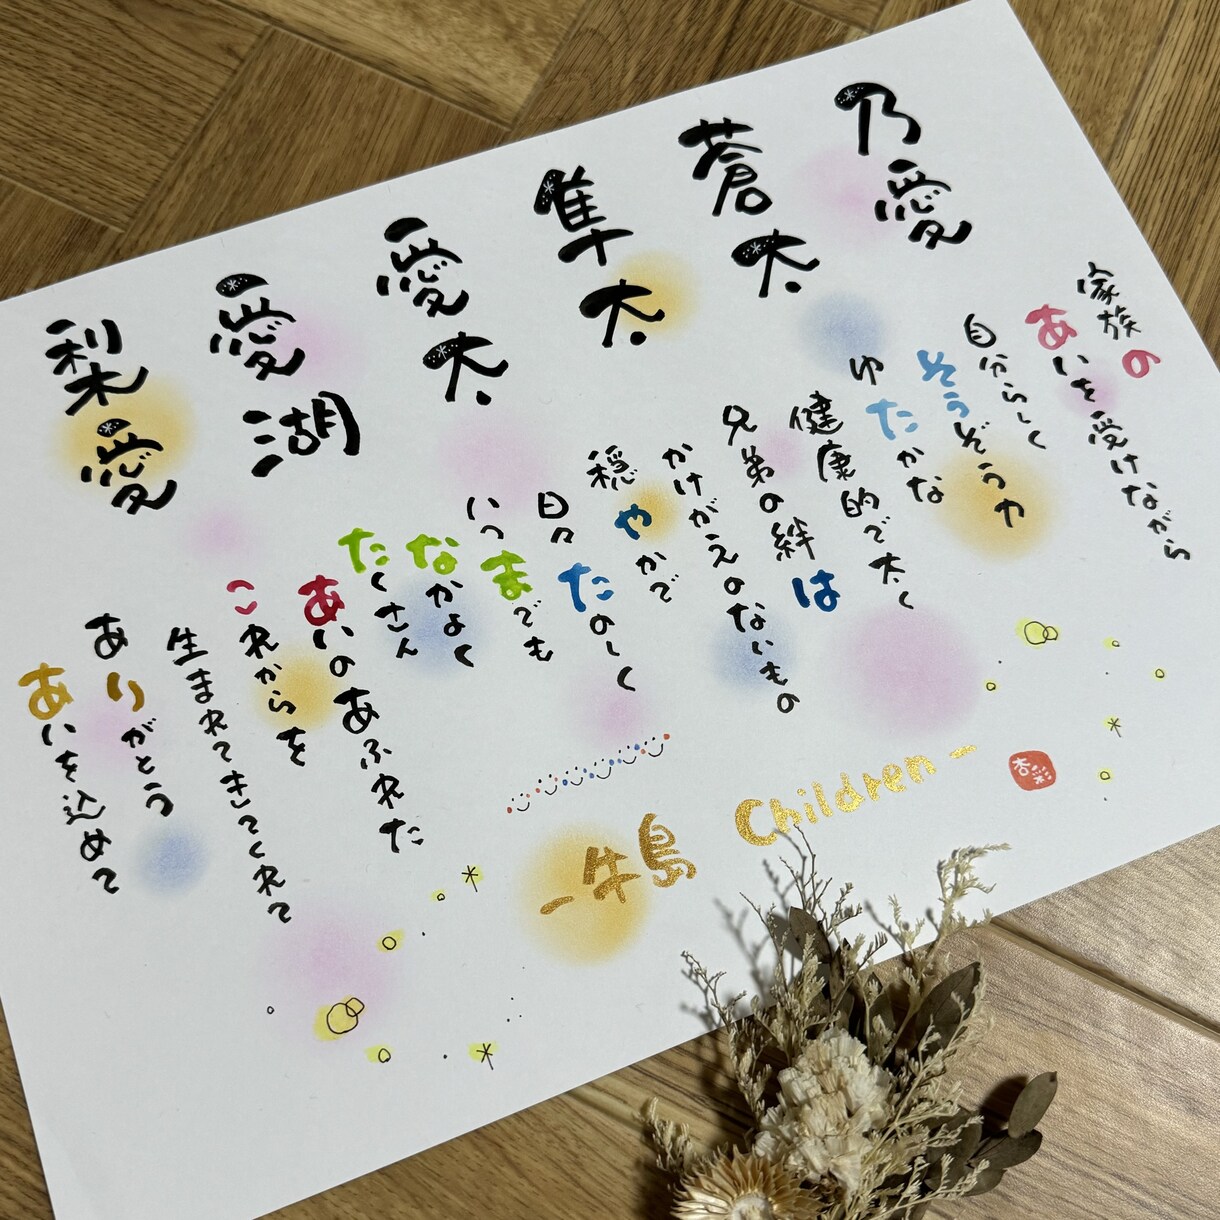 乃愛
蒼太
隼太
愛太
愛湖
梨愛
家族の
あいを受けながら
自分らしく
そうぞう力
ゆたかな
健康的で太く
兄弟の絆は
かけがえのないもの
穏やかで
日々たのしく
いつまでも
なかよく
たくさん
あいのあふれた
これからを
生まれてきてくれて
ありがとう
あいを込めて
-牛島 Children-
杏彩